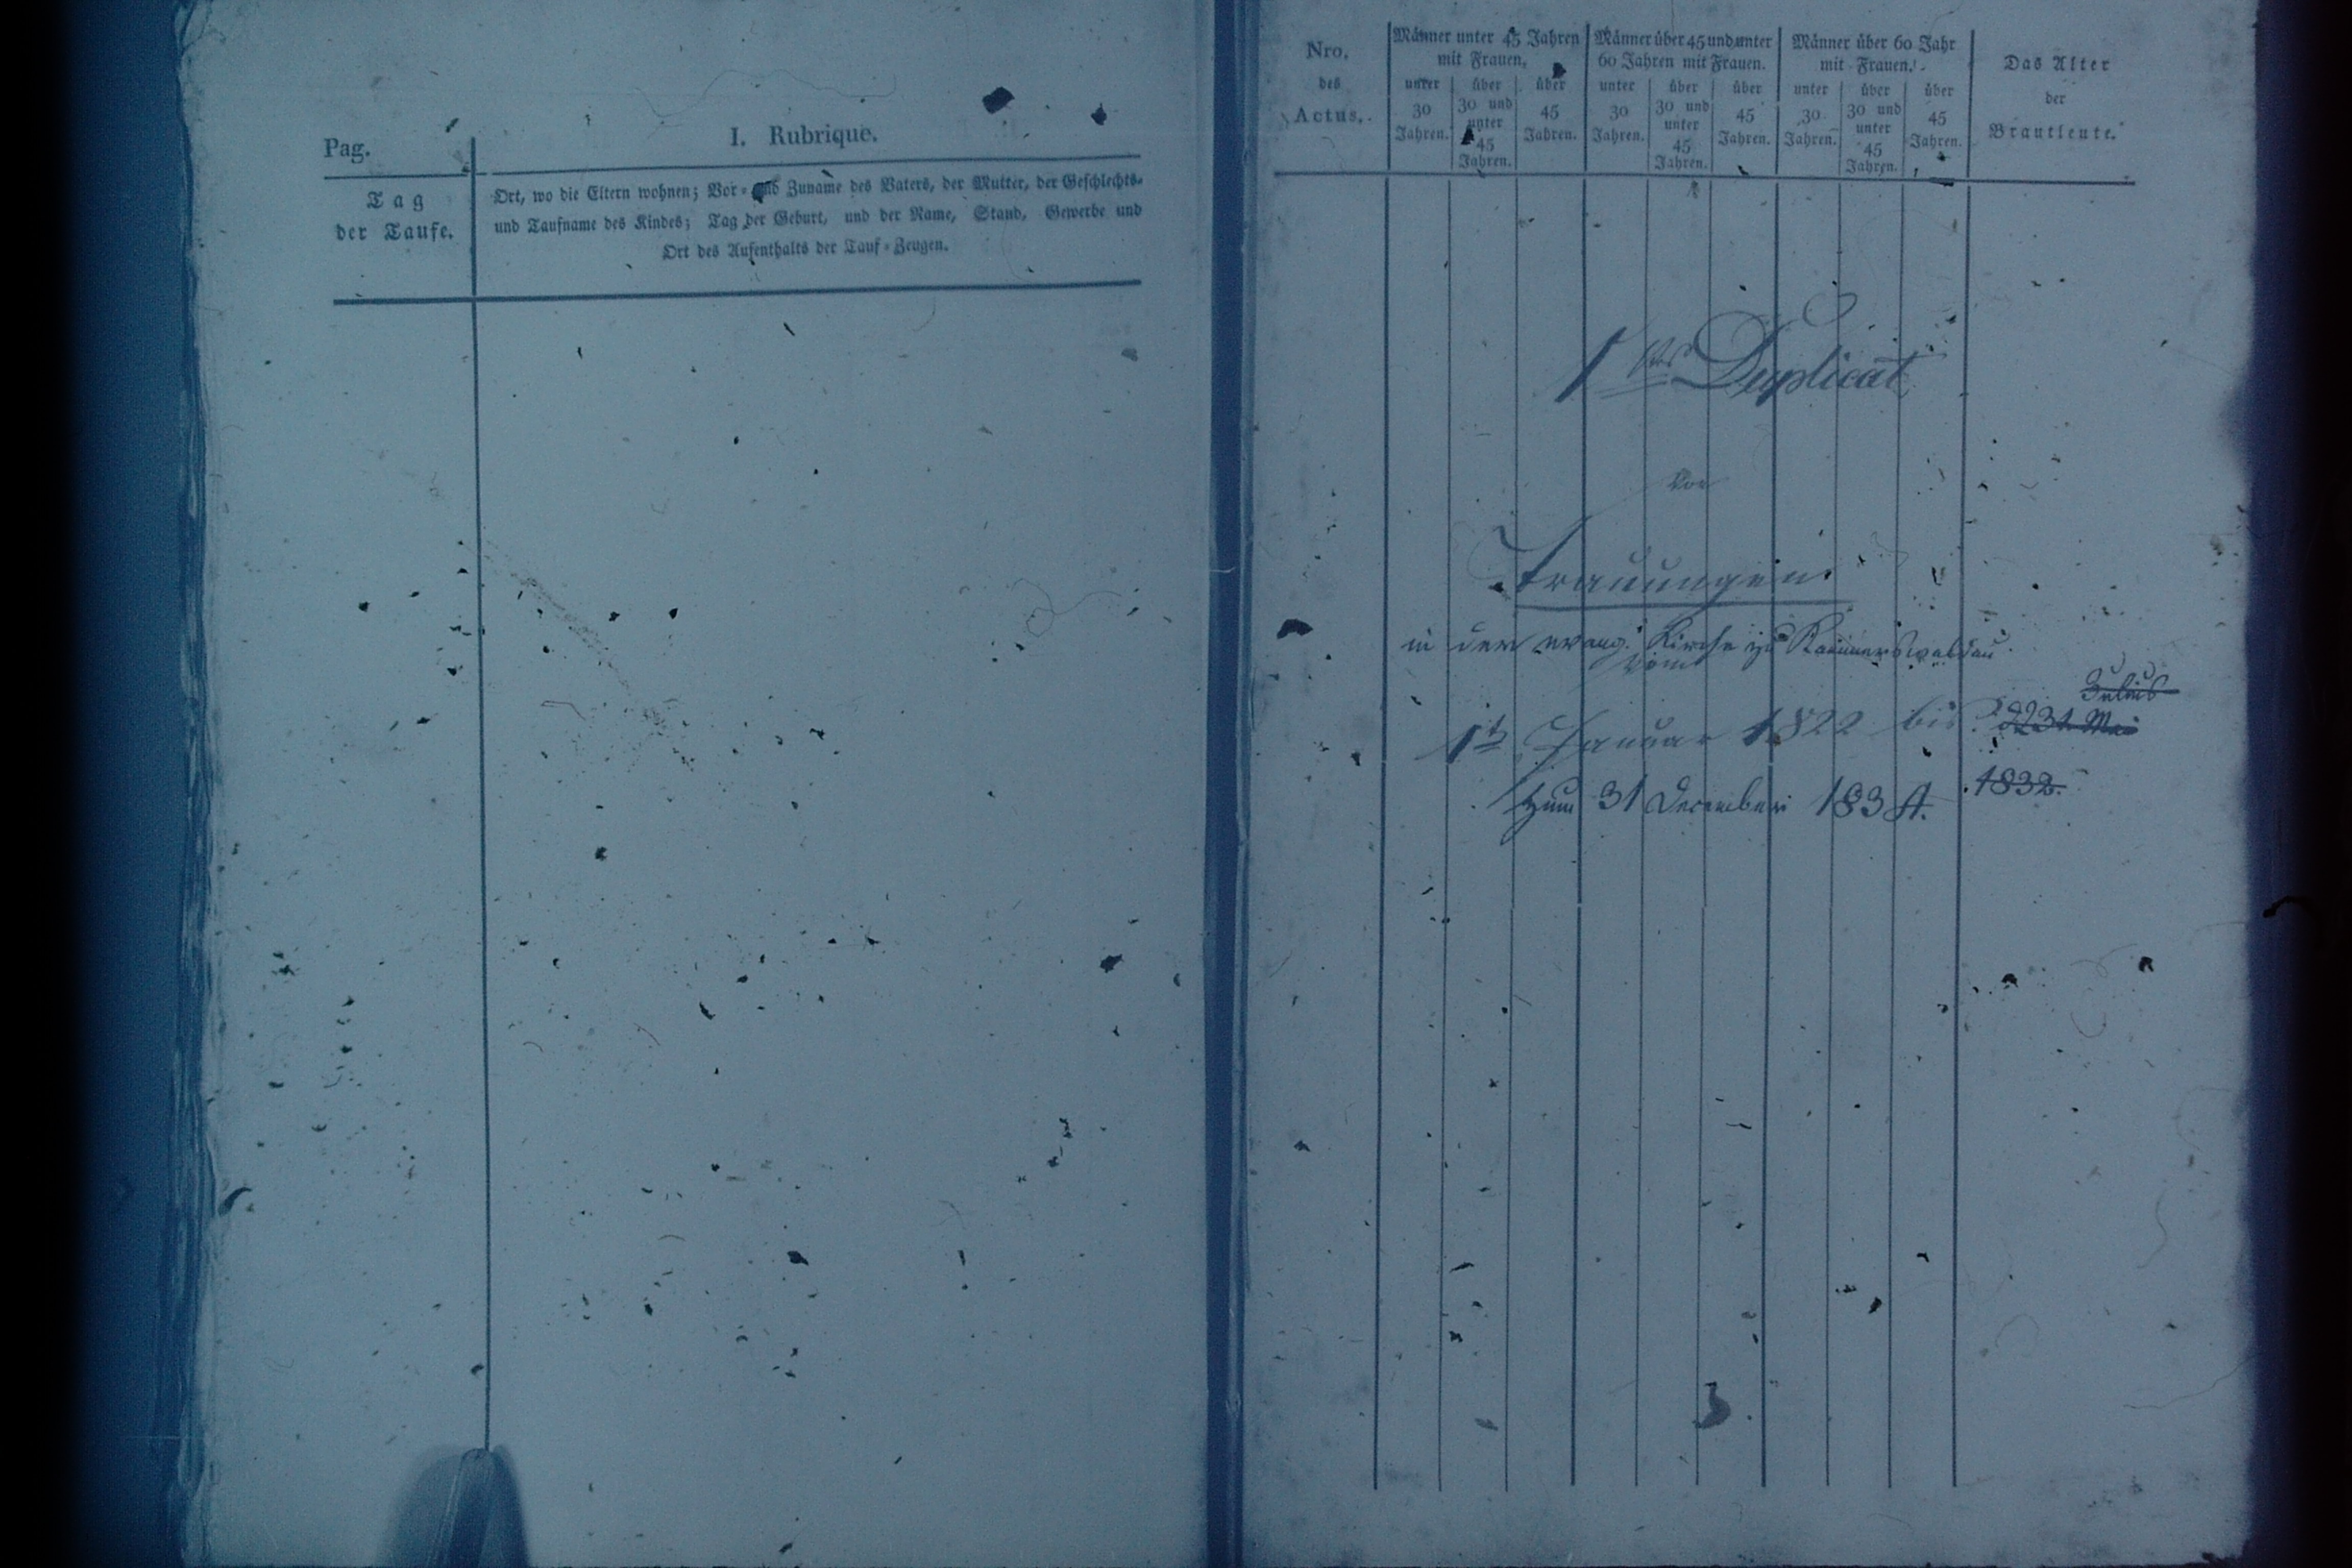 Pag.
I. Rubrique.
Tag
der Taufe.
Ort, wo die Eltern wohnen; Vor- und Zuname des Vaters, der Mutter, der Geschlechts-
und Taufname des Kindes; Tag der Geburt, und der Name, Stand, Gewerbe und
Ort des Aufenthalts der Tauf-Zeugen.
Nro.
des
Actus.
Männer unter 45 Jahren
mit Frauen,
unter
30
Jahren.
über
30 und
unter
45
Jahren.
über
45
Jahren.
Männer über 45 und unter
60 Jahren mit Frauen.
unter
30
Jahren.
über
30 und
unter
45
Jahren.
über
45
Jahren.
Männer über 60 Jahr
mit Frauen.
unter
30
Jahren.
über
30 und
unter
45
Jahren.
über
45
Jahren.
Das Alter
der
Brautleute.
1stes Duplicat
von
Trauungen.
in der evang. Kirche zu Kammerswaldau
vom
1t Januar 1822 bis
1832.
zum 31 December 183